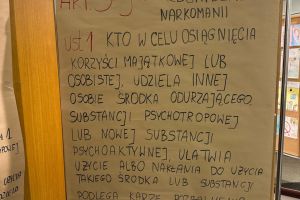 ART. 59
NARKOMANII
UST. 1 KTO W CELU OSIĄGNIĘCIA
KORZYŚCI MAJĄTKOWEJ LUB
OSOBISTEJ, UDZIELA INNEJ
OSOBIE ŚRODKA ODURZAJĄCEGO,
SUBSTANCJI PSYCHOTROPOWEJ
LUB NOWEJ SUBSTANCJI
PSYCHOAKTYWNEJ, UŁATWIA
UŻYCIE ALBO NAKŁANIA DO UŻYCIA
TAKIEGO ŚRODKA LUB SUBSTANCJI
PODLEGA KARZE POZBAWIENIA